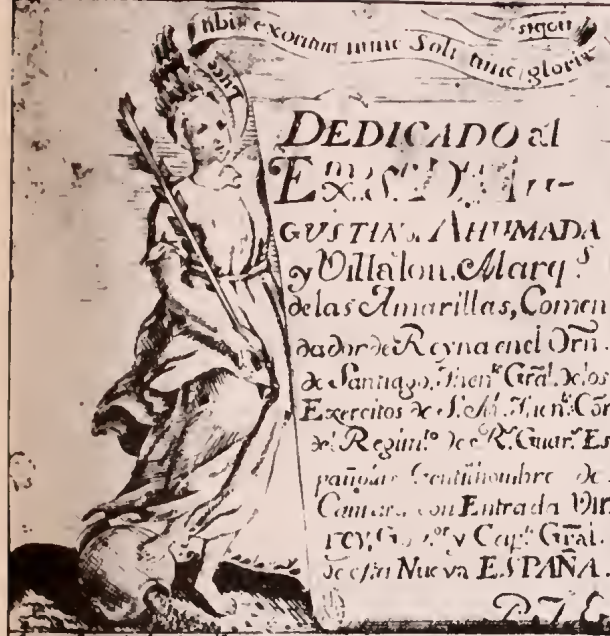 tibi exoritur nunc Soli tunc gloria
Luce
DEDICADO al
GUSTIN de AHUMADA
y Villalon. Marq.s
de las Amarillas, Comen
dador de Reyna en el Orn̄.
de Santiago, Then.te Grāl. de los
Exercitos de S. M. Then.te Cōr
del Regim.to de R.s Guar.s Es
pañolas Gentilhombre de
Camara con Entrada Vir
rey, Gov.or y Cap.n Grāl.
de esta Nueva ESPAÑA.